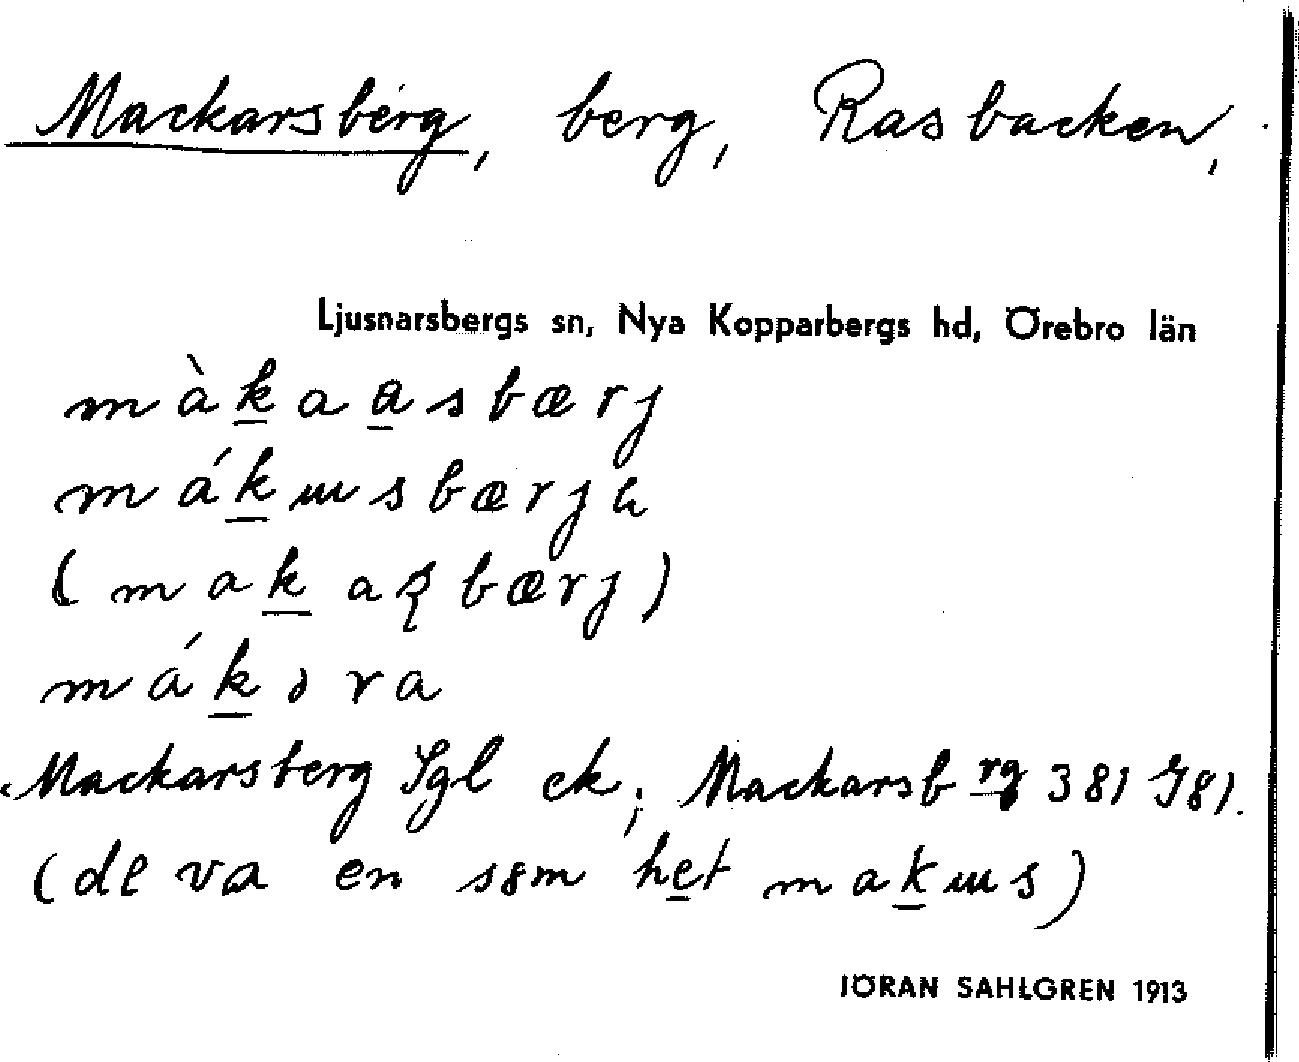 Mackarsberg, berg, Rasbacken,
Ljusnarsbergs sn, Nya Kopparbergs hd, Örebro län
màk̲aa̲sbærj
mák̲ɯsbærja
(mak̲aʂbærj)
mák̲əra
Mackarsberg Sgl ek; Mackarsb rg 381 J81.
(de va en som he̲t mak̲ɯs)
JÖRAN SAHLGREN 1913